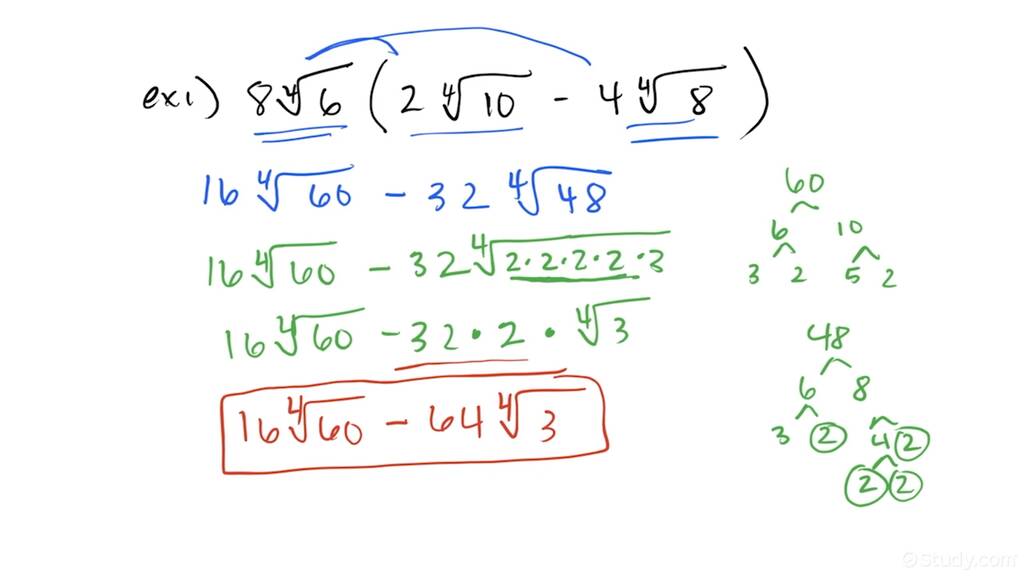 ex1) 8∜6 (2∜10 - 4∜8)
16∜60 - 32∜48
16∜60 - 32∜2·2·2·2·3
16∜60 - 32·2·∜3
16∜60 - 64∜3
60
6 10
3 2 5 2
48
6 8
3 2 4 2
2 2
©Study.com